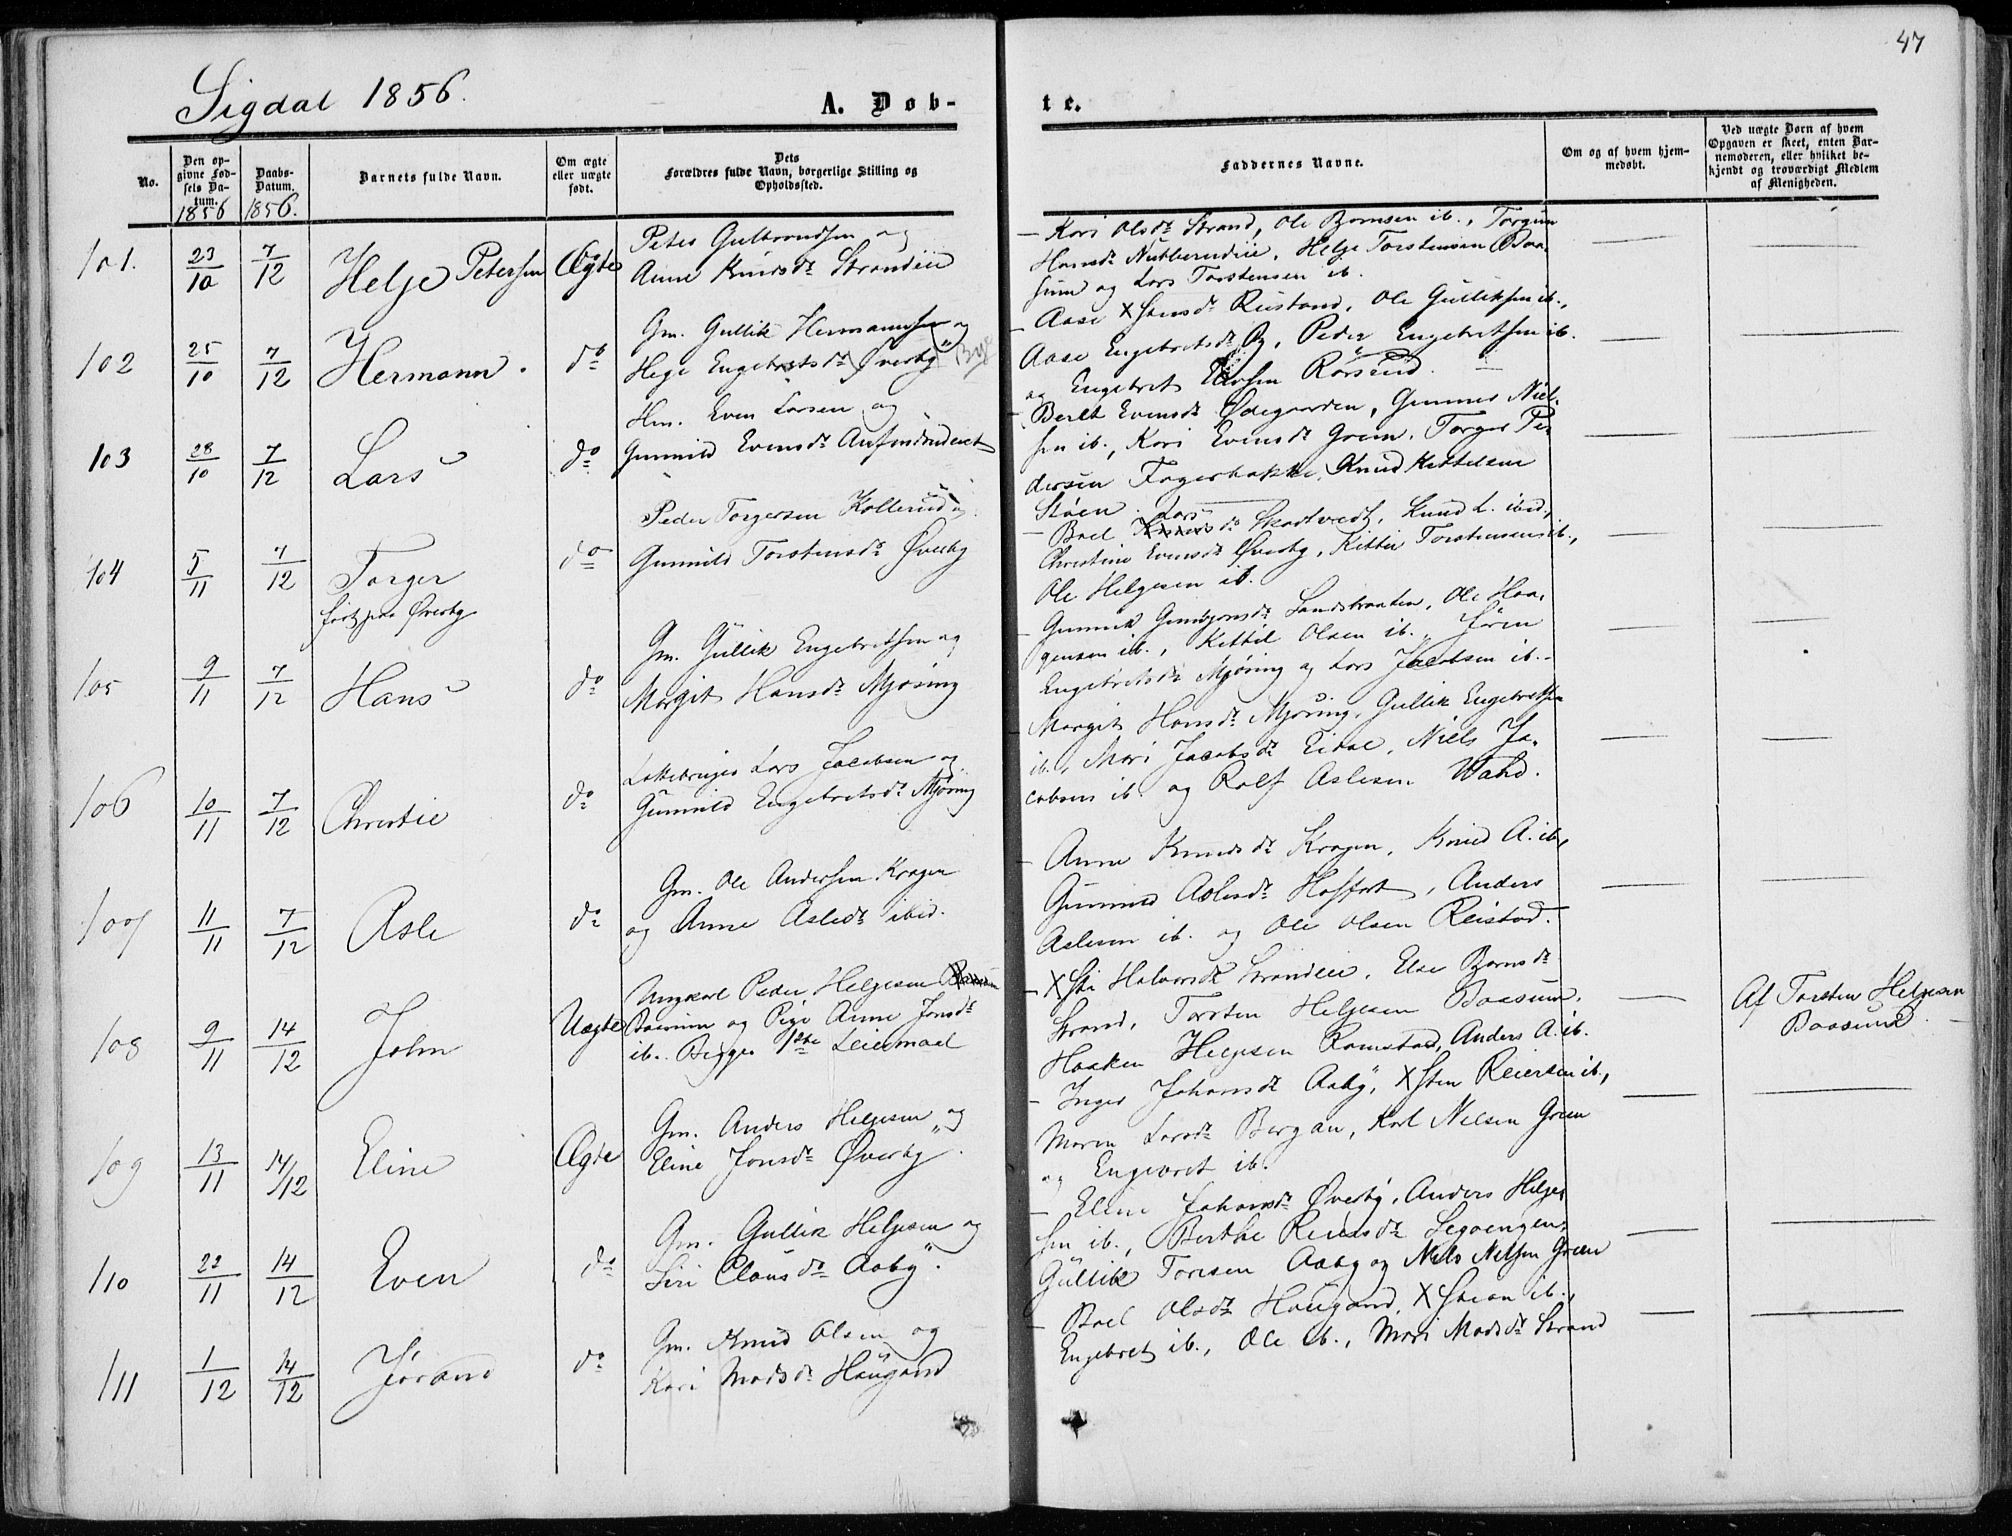 47
Sigdal 1856.
A. Døb-
te.
No.
Den op-
givne Fød-
sels Da-
tum.
1856
Daabs-
Datum.
1856.
Barnets fulde Navn.
Om ægte
eller uægte
født.
Dets
Forældres fulde Navn, borgerlige Stilling og
Opholdssted.
Faddernes Navne.
Om og af hvem hjem-
medøbt.
Ved uægte Børn af hvem
Opgaven er skeet, enten Bar-
nemoderen, eller hvilket be-
kjendt og troværdigt Medlem
af Menigheden.
101. 23/10 7/12 Helge Petersen Ægte
Peter Gulbrandsen og
Anne Knudsdr Strandeie
Kari Olsdr Strand, Ole Bornsen ib., Torgun
Hansdr Nubberudeie, Helge Torstensen Baa-
sum og Lars Torstensen ib.
102 25/10 7/12 Hermann. do
Gm. Gullik Hermannsen og
Hege Engebretsdr Øverby
Aase Xstensdr Reistand, Ole Gulliksen ib.,
Aase Engebretsdr By, Peder Engebretsen ib.
og Engebret
103 28/10 7/12 Lars do
Hm. Even Larsen og
Gunnild Evensdr
Berit Evensdr Ødegaarden, Gunner Niel-
sen ib., Kari Evensdr Green, Torger Pe-
dersen Fagerbakke, Knud Kittelsen
Støen.
104 5/11 7/12 Torger
født paa Øverby
do
Peder Torgersen Kollerud og
Gunnild Torstensdr Øverby
Boel Larsdr Skartvedt, Knud L. ibid.,
Christine Evensdr Øverby, Kittil Torstensen ib.,
Ole Helgesen ib.
105 9/11 7/12 Hans do
Gm. Gullik Engebretsen og
Margit Hansdr Mjøsing
Gunnil Gunbjørnsdr Sandsbraaten, Ole Haa-
gensen ib., Kittil Olsen ib., Jøren
Engebretsdr Mjøsing og Lars Jacobsen ib.
106 10/11 7/12 Christie do
Lars Jacobsen og
Gunnild Engebretsdr Mjøsing
Margit Hansdr Mjøsing, Gullik Engebretsen
ib., Mari Jacobsdr Eidal, Niels Ja-
cobsen ib. og Rolf Aslesen Wahd.
107 11/11 7/12 Asle do
Gm. Ole Andersen Kragen
og Anne Aslesdr ibid.
Anne Knudsdr Kragen, Knud A. ib.,
Gunnild Aslesdr Hoffart, Anders
Aslesen ib. og Ole Olsen Reistad.
108 9/11 14/12 John Uægte
Ungkarl Peder Helgesen
Baasum og Pige Anne Jonsdr
ib. Begges 1ste Leiermaal
Xsti Halvorsdr Strandeie, Else Bornsdr
Strand, Torsten Helgesen Baasum,
Haaken Helgesen Ramstad, Anders A. ib.
Af Torsten Helgesen
Baasum
109 13/11 14/12 Eline Ægte
Gm. Anders Helgesen og
Eline Jonsdr Øverby.
Inger Johansdr Aaby, Xsten Reiersen ib.,
Maren Larsdr Bergan, Karl Nelsen Green
og Engebret ib.
110 22/11 14/12 Even do
Gm. Gullik Helgesen og
Siri Clausdr Aaby.
Eline Johansdr Øverby, Anders Helge-
sen ib., Berthe Reiersdr
Gullik Toresen Aaby og Nels Nelsen Green
111 1/12 14/12 Jørand do
Gm. Knud Olsen og
Kari Madsdr Haugand
Boel Olsdr Haugand, Xstian ib.,
Engebret ib., Ole ib., Mari Madsdr Strand